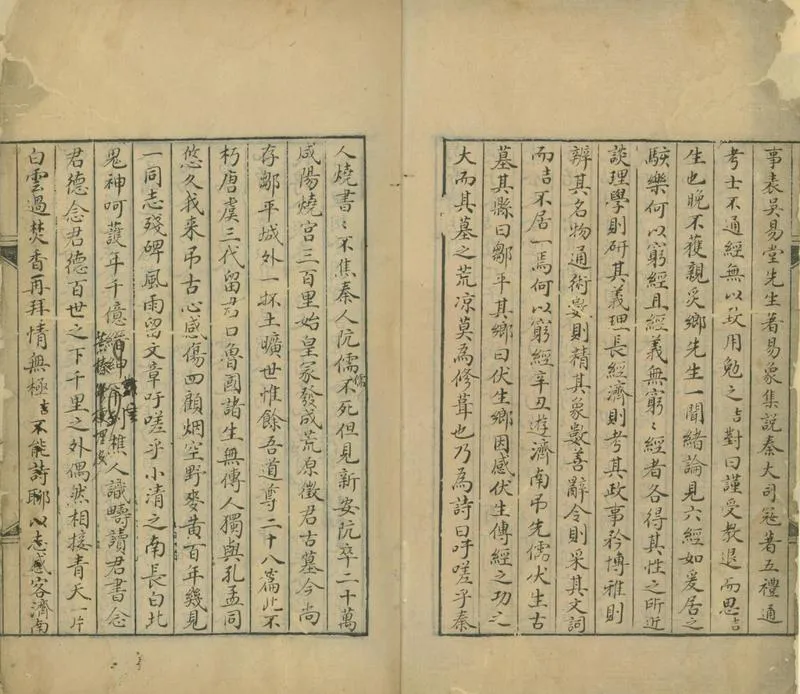 事表吳易堂先生著易象集說秦大司冦著五禮通
考士不通經無以致用勉之吉對曰謹受教退而思吉
生也晚不獲親炙鄉先生一聞緒論見六經如爰居之
駭樂何以窮經且經義無窮〻經者各得其性之所近
談理學則研其義理長經濟則考其政事矜博雅則
辨其名物通術數則精其象數善辭令則采其文詞
而吉不居一焉何以窮經辛丑遊濟南吊先儒伏生古
墓其縣曰鄒平其鄉曰伏生鄉因感伏生傳經之功之
大而其墓之荒凉莫為修葺也乃為詩曰吁嗟乎秦
人燒書〻不焦秦人阬儒儒不死但見新安阬卒二十萬
咸陽燒宮三百里始皇冢發成荒原徵君古墓今尚
存鄒平城外一抔土曠世惟餘吾道尊二十八篇比不
朽唐虞三代留君口魯國諸生無傳人獨與孔孟同
悠久我来吊古心感傷四顧烟空野麥黄百年幾見
一同志殘碑風雨留文章吁嗟乎小清之南長白北
鬼神呵護年千億樵人識疇讀君書念
君德念君德百世之下千里之外偶然相接青天一片
白雲過焚香再拜情無極吉不能詩聊以志感客濟南